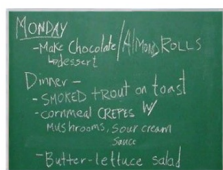 MONDAY
- Make Chocolate/Almond ROLLS
dessert
Dinner -
- SMOKED trout on toast
- cornmeal CREPES W/
Mushrooms, sour cream
sauce
- Butter-lettuce salad